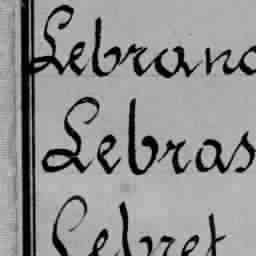 Lebranc
Lebras
Lebret